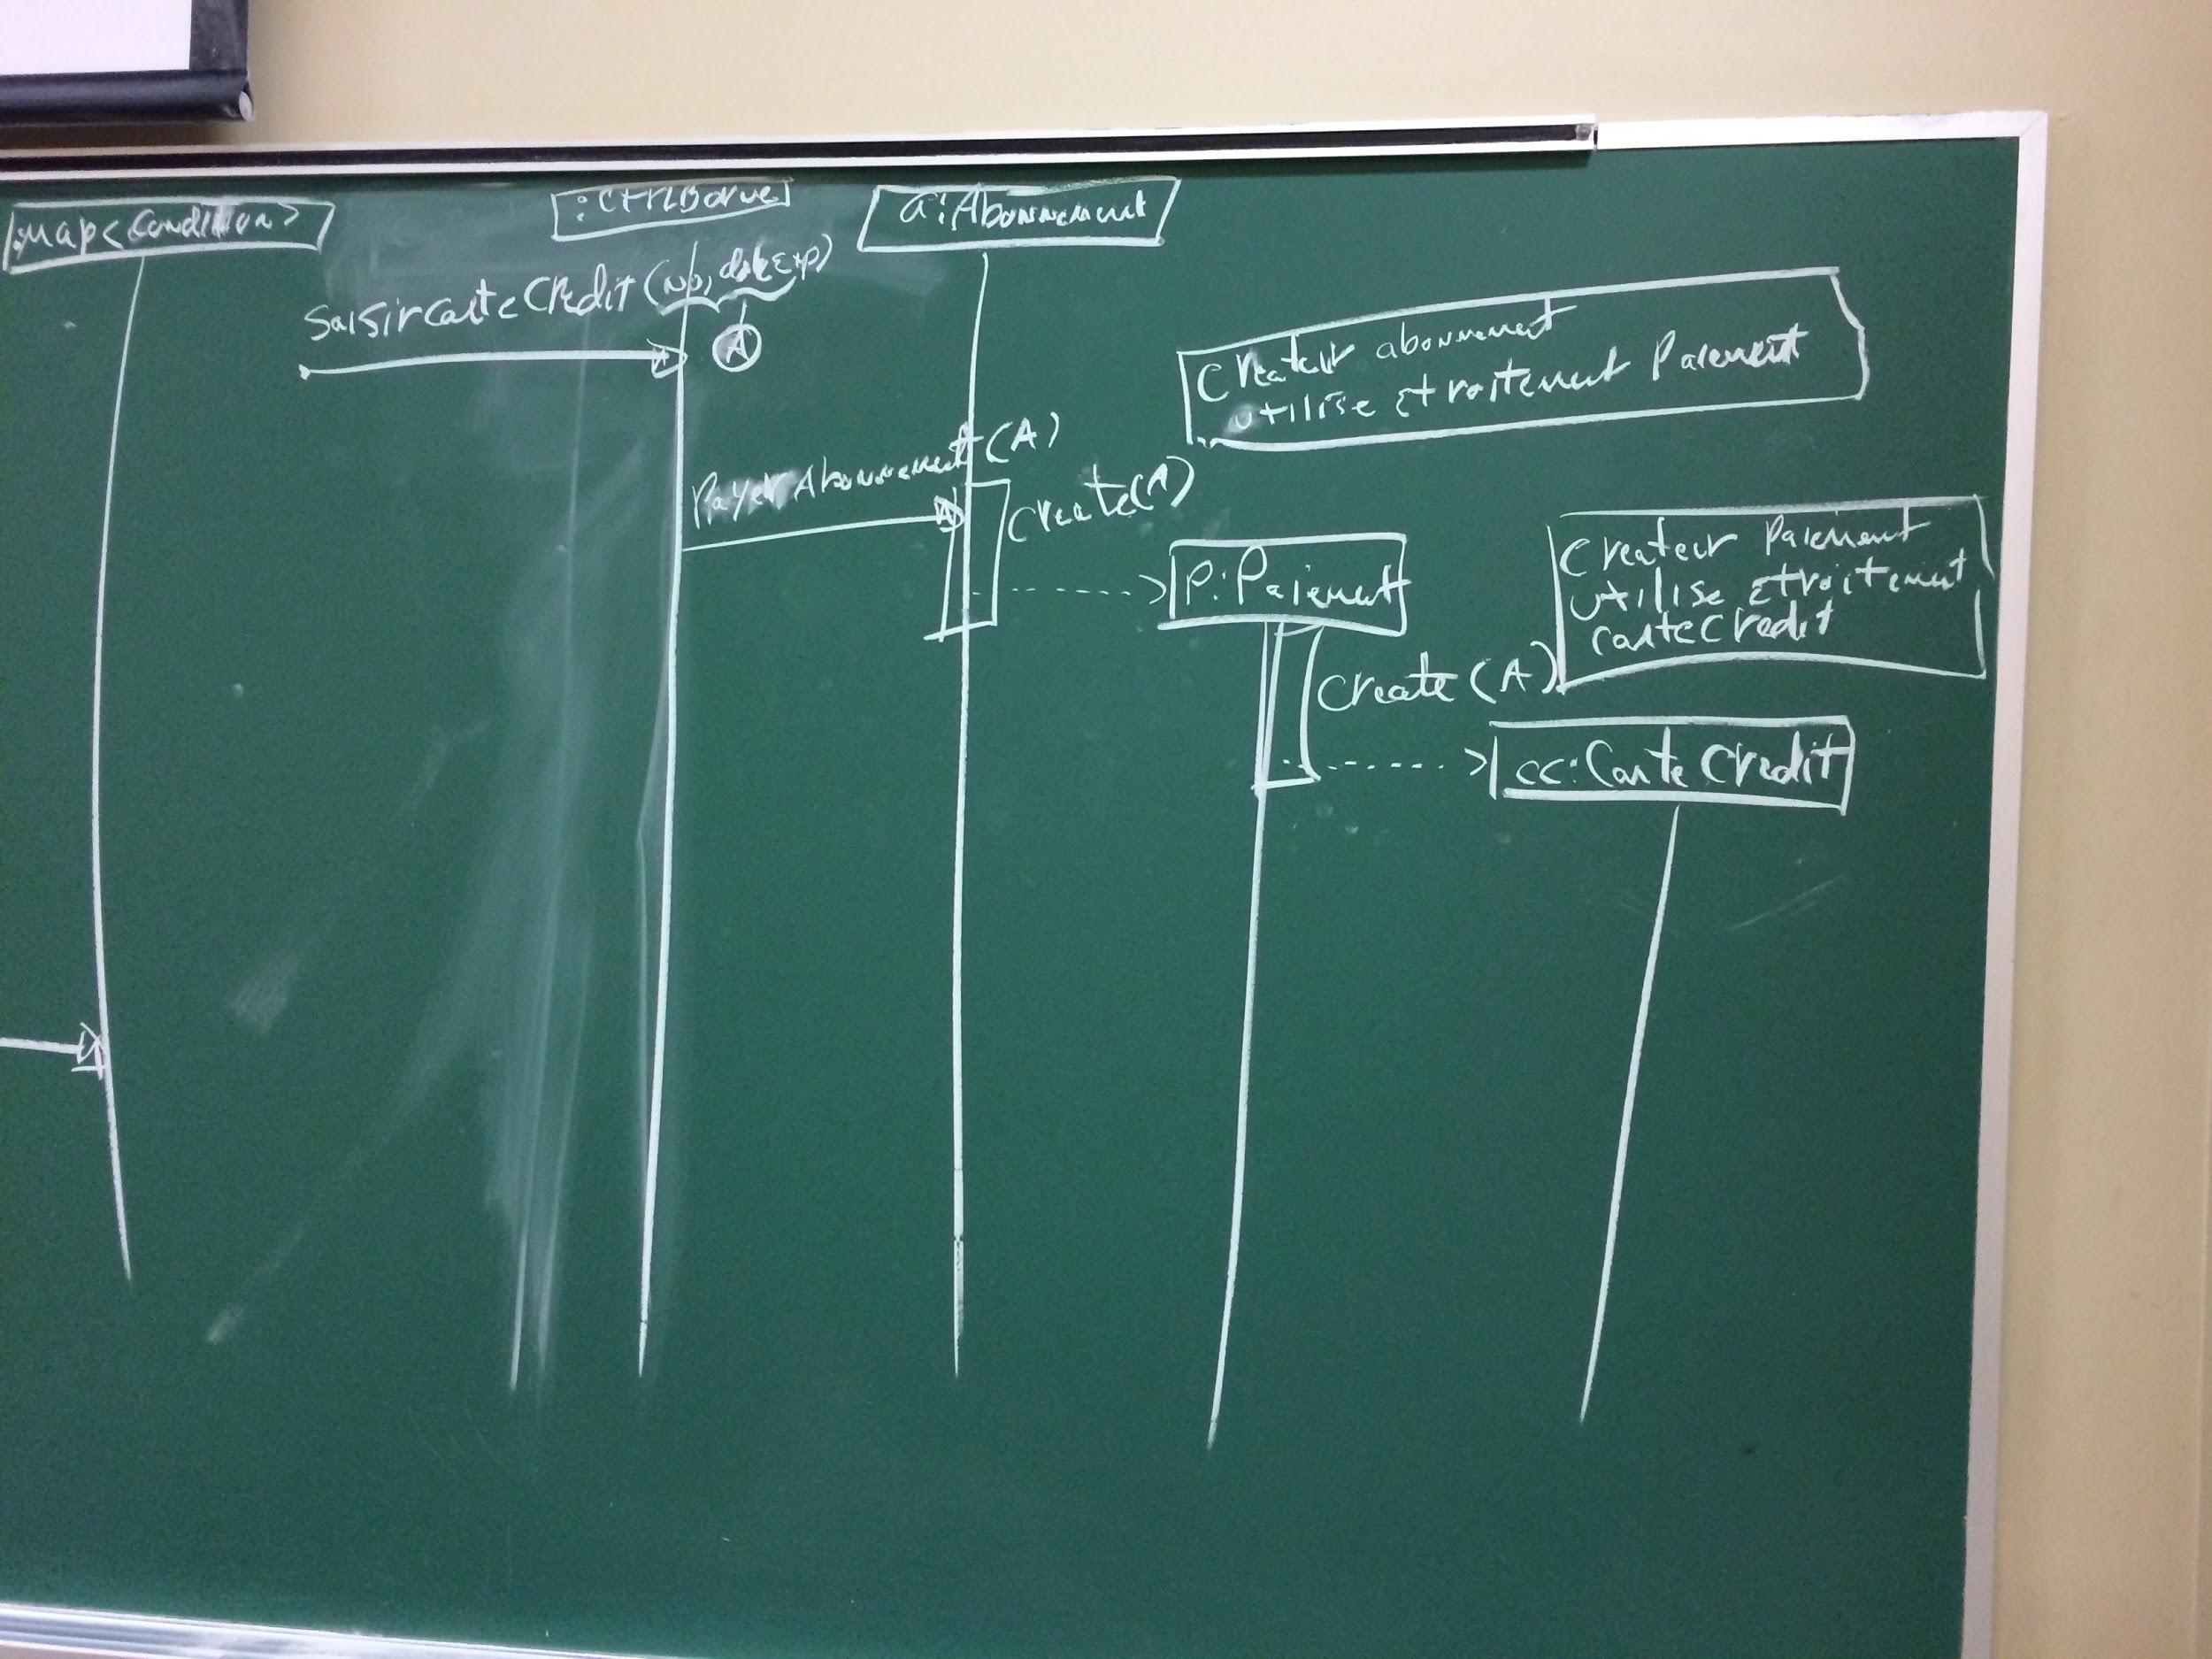 :Map<Condition>
:CtrlBorne
a:Abonnement
SaisircarteCredit(no, dateExp)
A
Créateur abonnement
utilise Etroitement Paiement
PayerAbonnement(A)
Create(A)
P:Paiement
Createur Paiement
utilise Etroitement
carteCredit
Create(A)
cc:CarteCredit